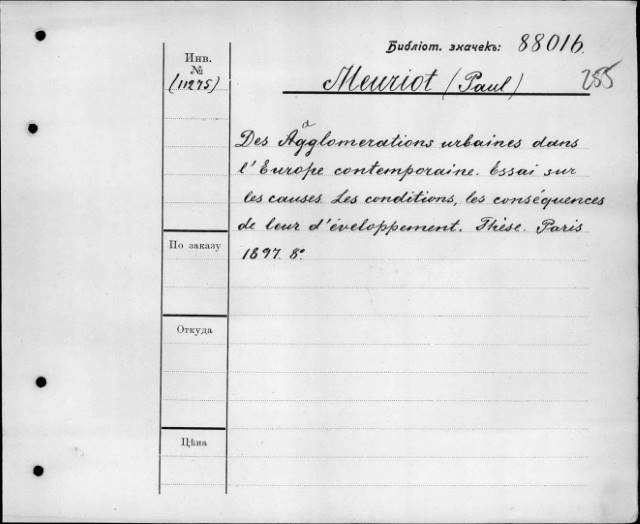 Библіот. значекъ: 88016.
Инв.
№
(11275)
Meuriot (Paul)
255
Des Agglomerations urbaines dans
l'Europe contemporaine. Essai sur
les causes. Les conditions, les conséquences
de leur d'éveloppement. Thèse. Paris
1897. 8°.
По заказу
Откуда
Цѣна